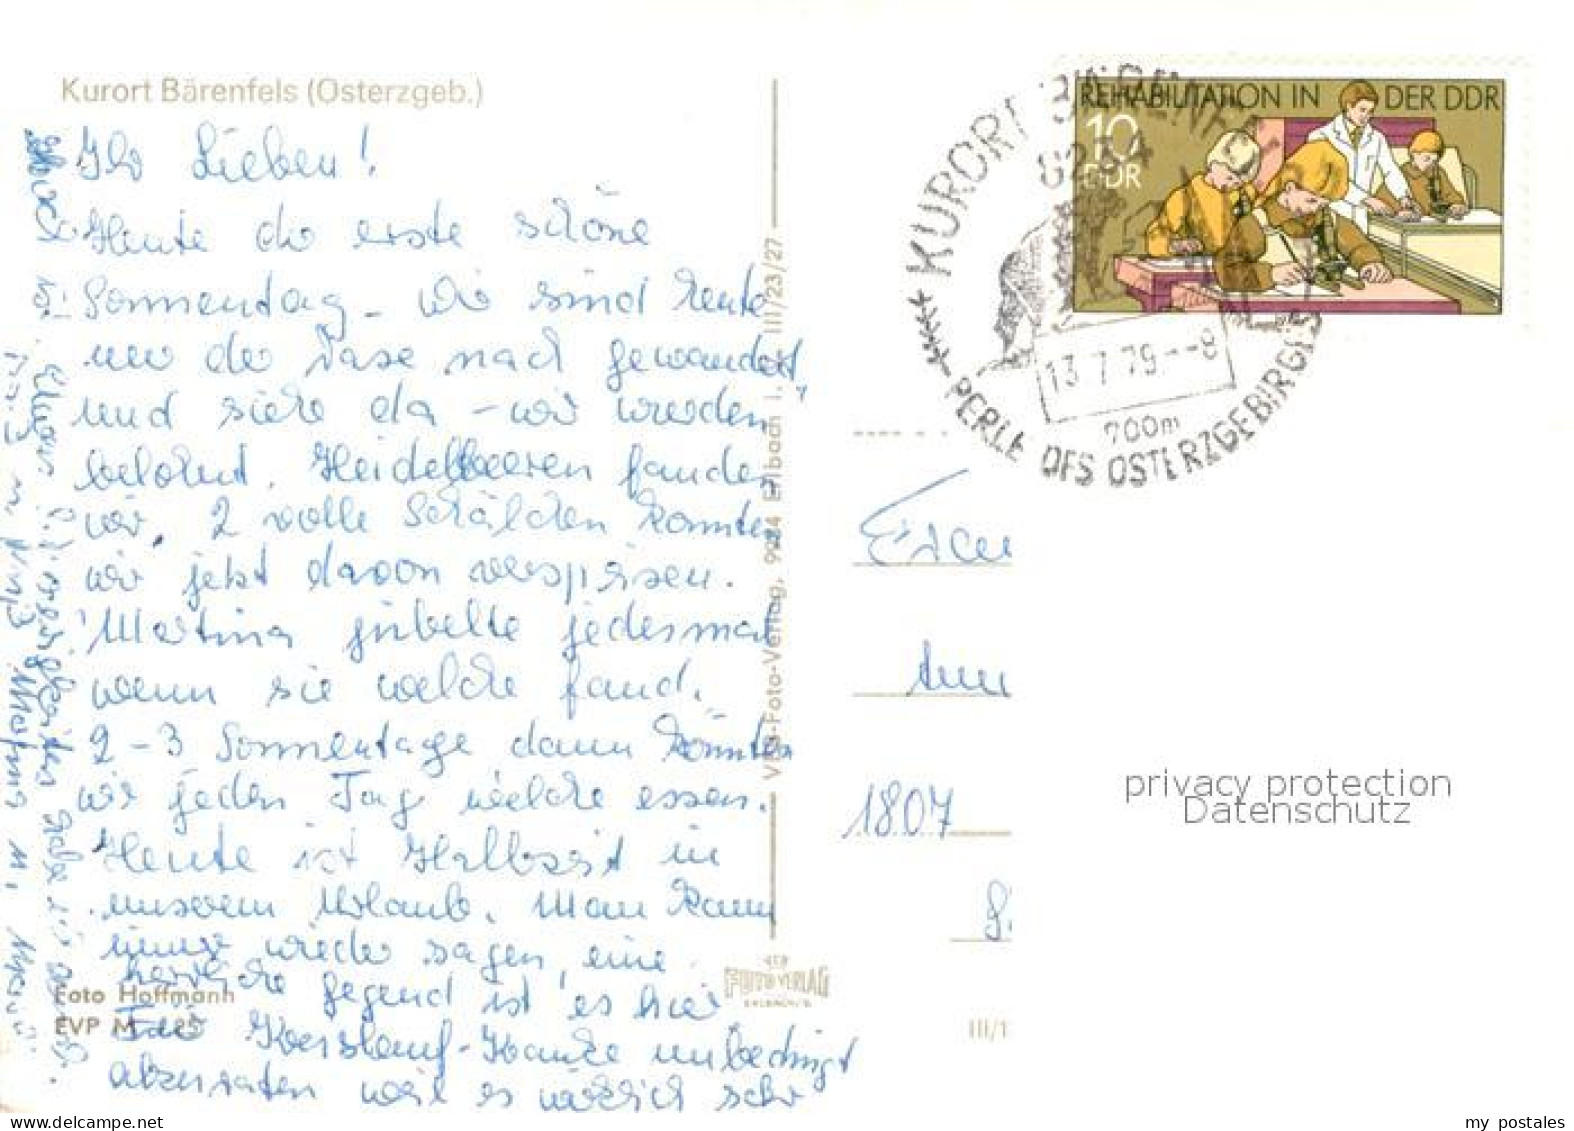 Kurort Bärenfels (Osterzgeb.)
Ihr Lieben!
Heute der erste schöne
Sonnentag – wir sind heute
um die Nase nach gewandert
und siehe da – wir wurden
belohnt. Heidelbeeren fanden
wir, 2 volle Schälchen konnten
wir jetzt davon verspeisen.
Martina jubelte jedesmal
wenn sie welche fand.
2–3 Sonnentage dann könnten
wir jeden Tag welche essen.
Heute ist Halbzeit in
unserem Urlaub. Man kann
immer wieder sagen, eine
herrliche Gegend ist es hier
Für Kreislauf-Kranke unbedingt
abzuraten weil es wirklich sehr
Foto Hoffmann
EVP M
VEB-Foto-Verlag, 9934 Erlbach i. III/23/27
VEB
FOTO-VERLAG
ERLBACH/V.
REHABILITATION IN DER DDR
10
DDR
KURORT BÄRENFELS
8234
13.7.79.--8
700m
PERLE DES OSTERZGEBIRGES
1807
III/1
privacy protection
Datenschutz
my postales